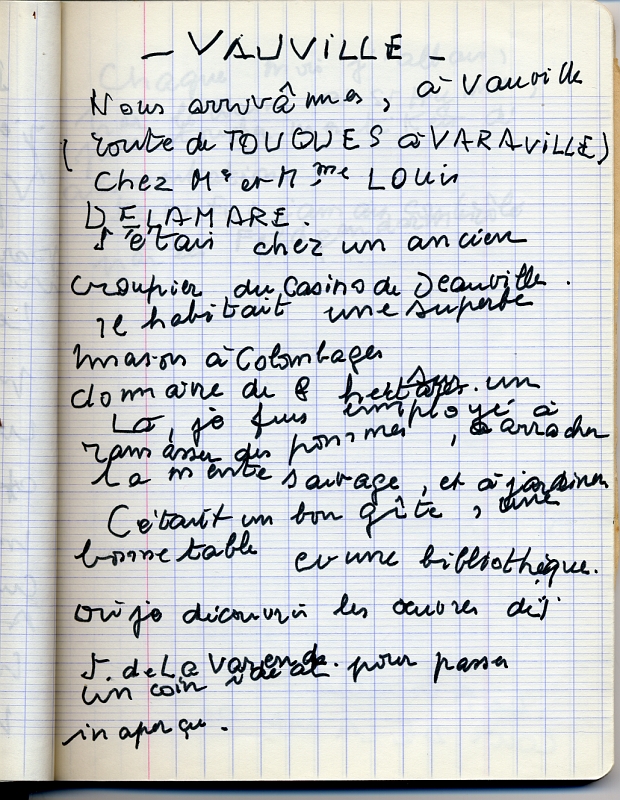 - VAUVILLE -
Nous arrivâmes, à Vauville
(route de TOUQUES à VARAVILLE)
Chez Mr et Mme LOUIS
DELAMARE.
J'étais chez un ancien
croupier du Casino de Deauville.
il habitait une superbe
maison à Colombages
domaine de 8 hectares. un
Là, je fus employé à
ramasser des pommes, à arracher
la menthe sauvage, et à jardiner
C'était un bon gîte, une
bonne table et une bibliothèque.
où je découvris les œuvres de
J. de La Varende. pour passer
un coin idéal
inaperçu.